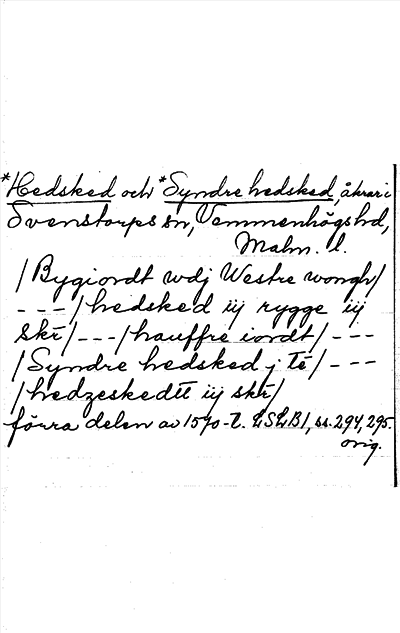 *Hedsked och *Syndre hedsked, åkrar i
Svenstorps sn, Vemmenhögs hd,
Malm. l.
/Bygiordt wdj Westre wongh/
---/hedsked iij rygge iij
skr̄/---/hauffre iordt/---
/Syndre hedsked j tē/---
/hedzeskedtt iij skr̄/
förra delen av 1570-t. LSLB1, ss. 294, 295.
orig.